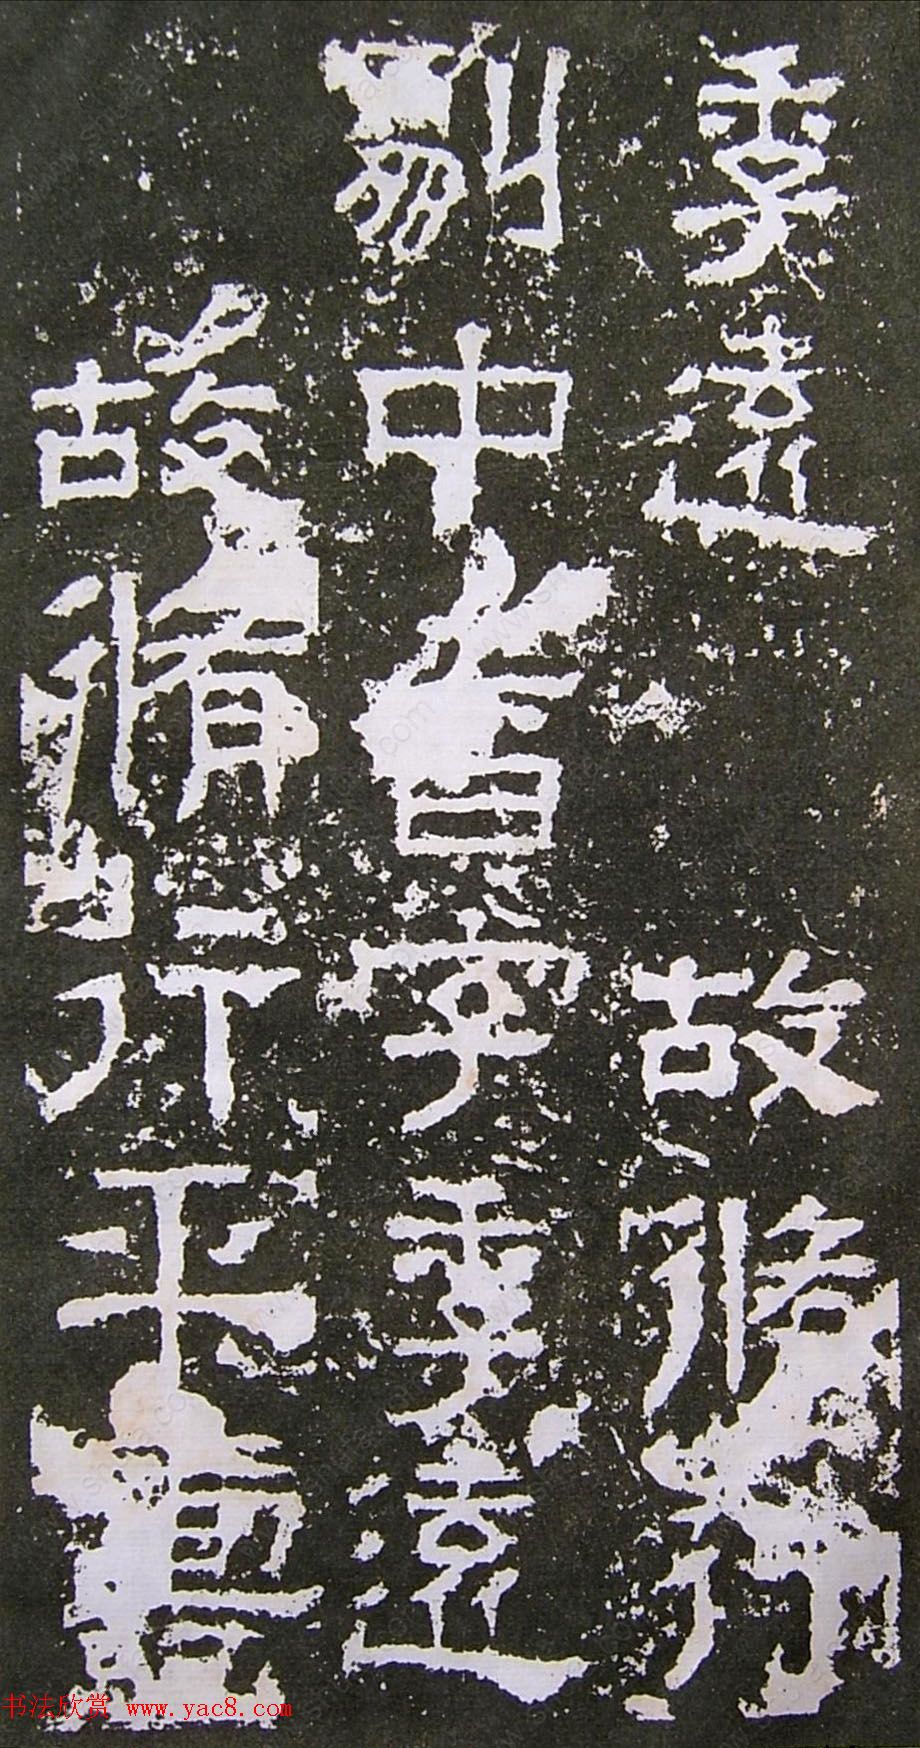 季遠 故脩行
劇中字季遠
故脩行平壽
书法欣赏 www.yac8.com